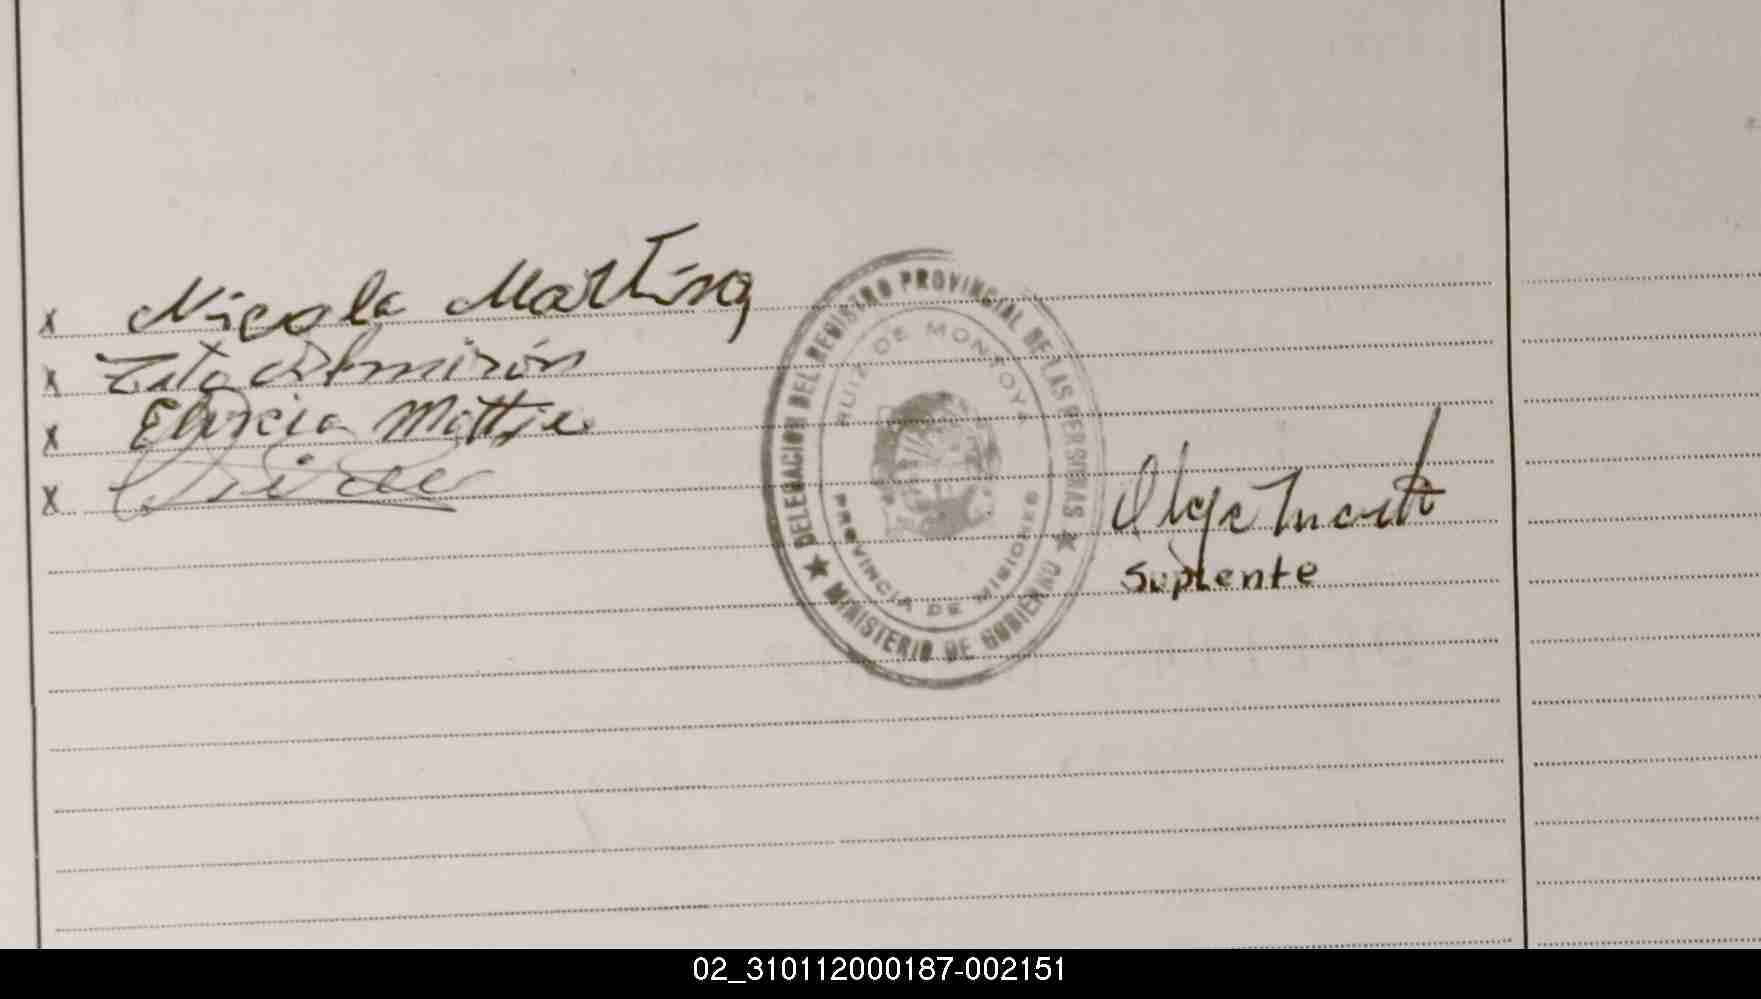 x Nicola Martinez
x Tito Almirón
x
x
DELEGACION DEL REGISTRO PROVINCIAL DE LAS PERSONAS
RUIZ DE MONTOYA
PROVINCIA DE MISIONES
★ MINISTERIO DE GOBIERNO ★
Olga
Suplente
02_310112000187-002151